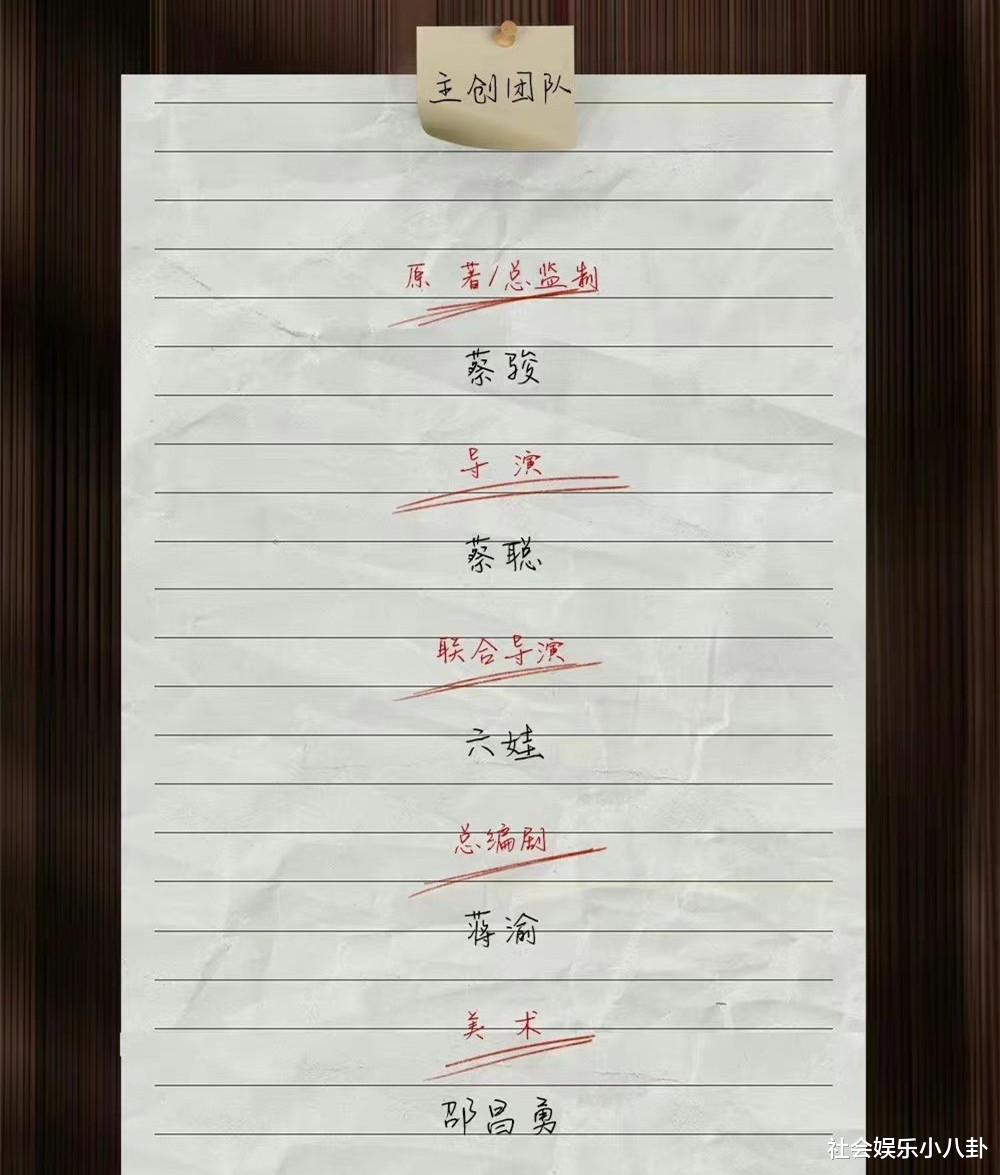 主创团队
原 著/总监制
蔡骏
导 演
蔡聪
联合导演
六娃
总编剧
蒋渝
美 术
邵昌勇
社会娱乐小八卦